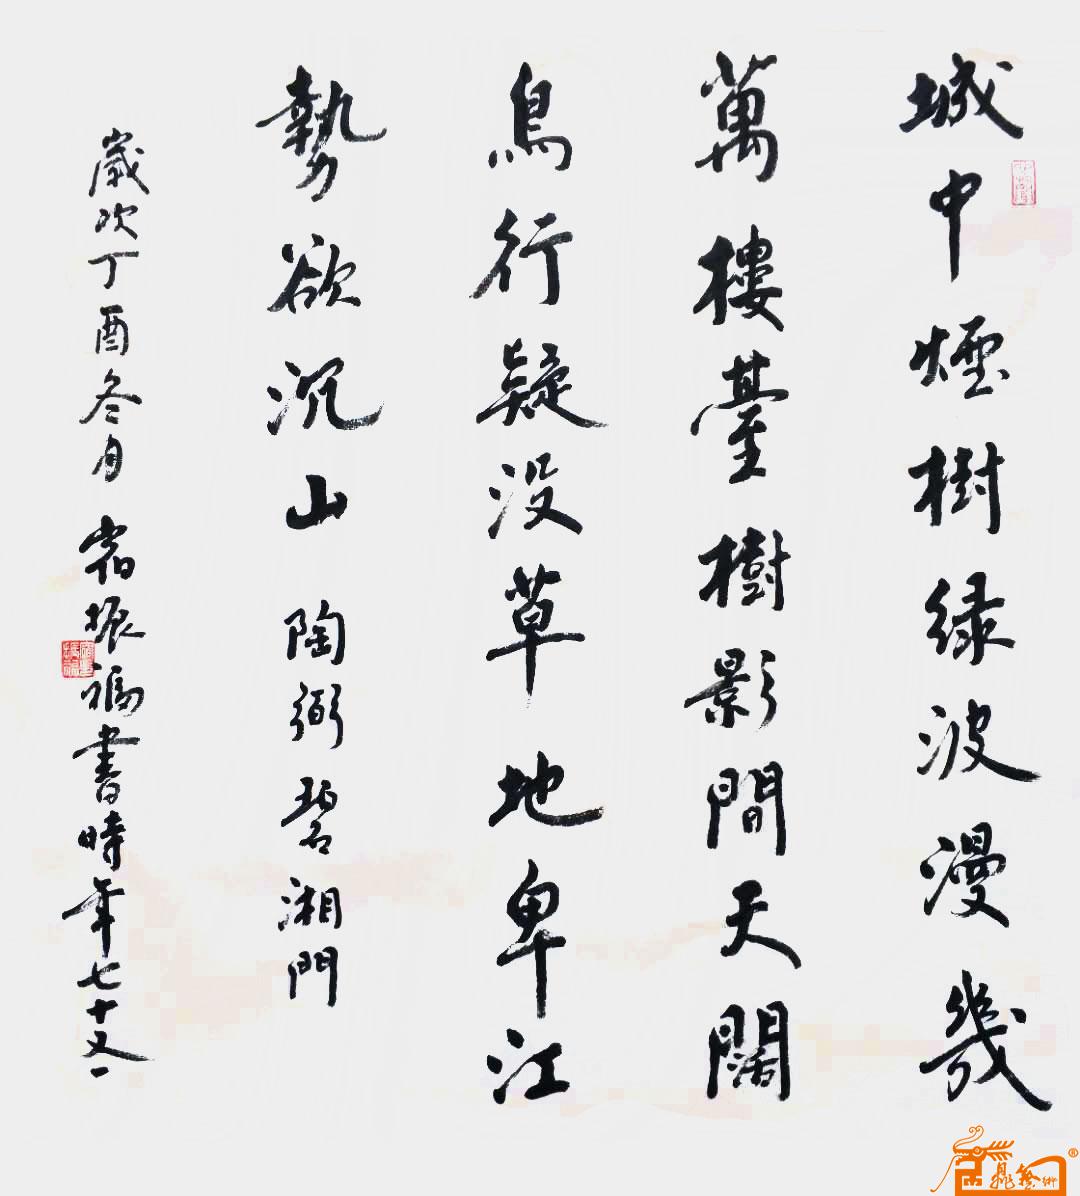 城中煙樹绿波漫幾
萬樓臺樹影間天闊
鳥行疑没草地卑江
勢欲沉山 陶弼碧湘門
歲次丁酉冬月 宿振福書時年七十又一